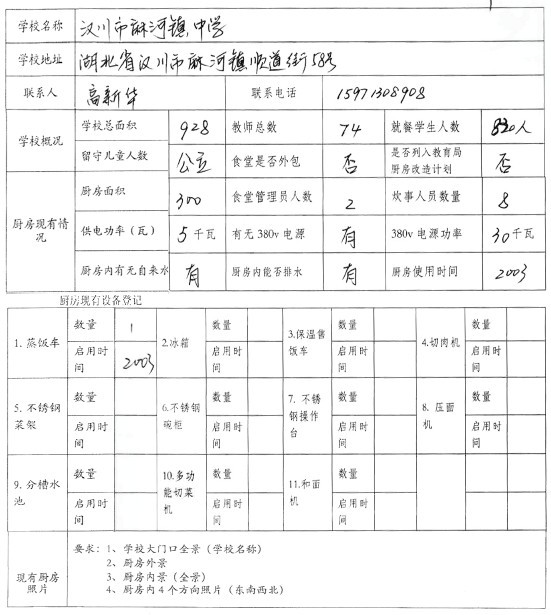 学校名称 汉川市麻河镇中学
学校地址 湖北省汉川市麻河镇顺道街58号
联系人 高新华 联系电话 15971308908
学校概况 学校总面积 928 教师总数 74 就餐学生人数 830人
留守儿童人数 公立 食堂是否外包 否 是否列入教育局厨房改造计划 否
厨房现有情况 厨房面积 300 食堂管理员人数 2 炊事人员数量 8
供电功率（瓦） 5千瓦 有无 380v 电源 有 380v 电源功率 30千瓦
厨房内有无自来水 有 厨房内能否排水 有 厨房使用时间 2003
厨房现有设备登记
1. 蒸饭车 数量 1 2.冰箱 数量 3.保温售饭车 数量 4.切肉机 数量
启用时间 2003 启用时间 启用时间 启用时间
5. 不锈钢菜架 数量 6.不锈钢碗柜 数量 7. 不锈钢操作台 数量 8. 压面机 数量
启用时间 启用时间 启用时间 启用时间
9. 分槽水池 数量 10.多功能切菜机 数量 11.和面机 数量
启用时间 启用时间 启用时间
现有厨房照片 要求：1、学校大门口全景（学校名称）
2、厨房外景
3、厨房内景（全景）
4、厨房内 4 个方向照片（东南西北）